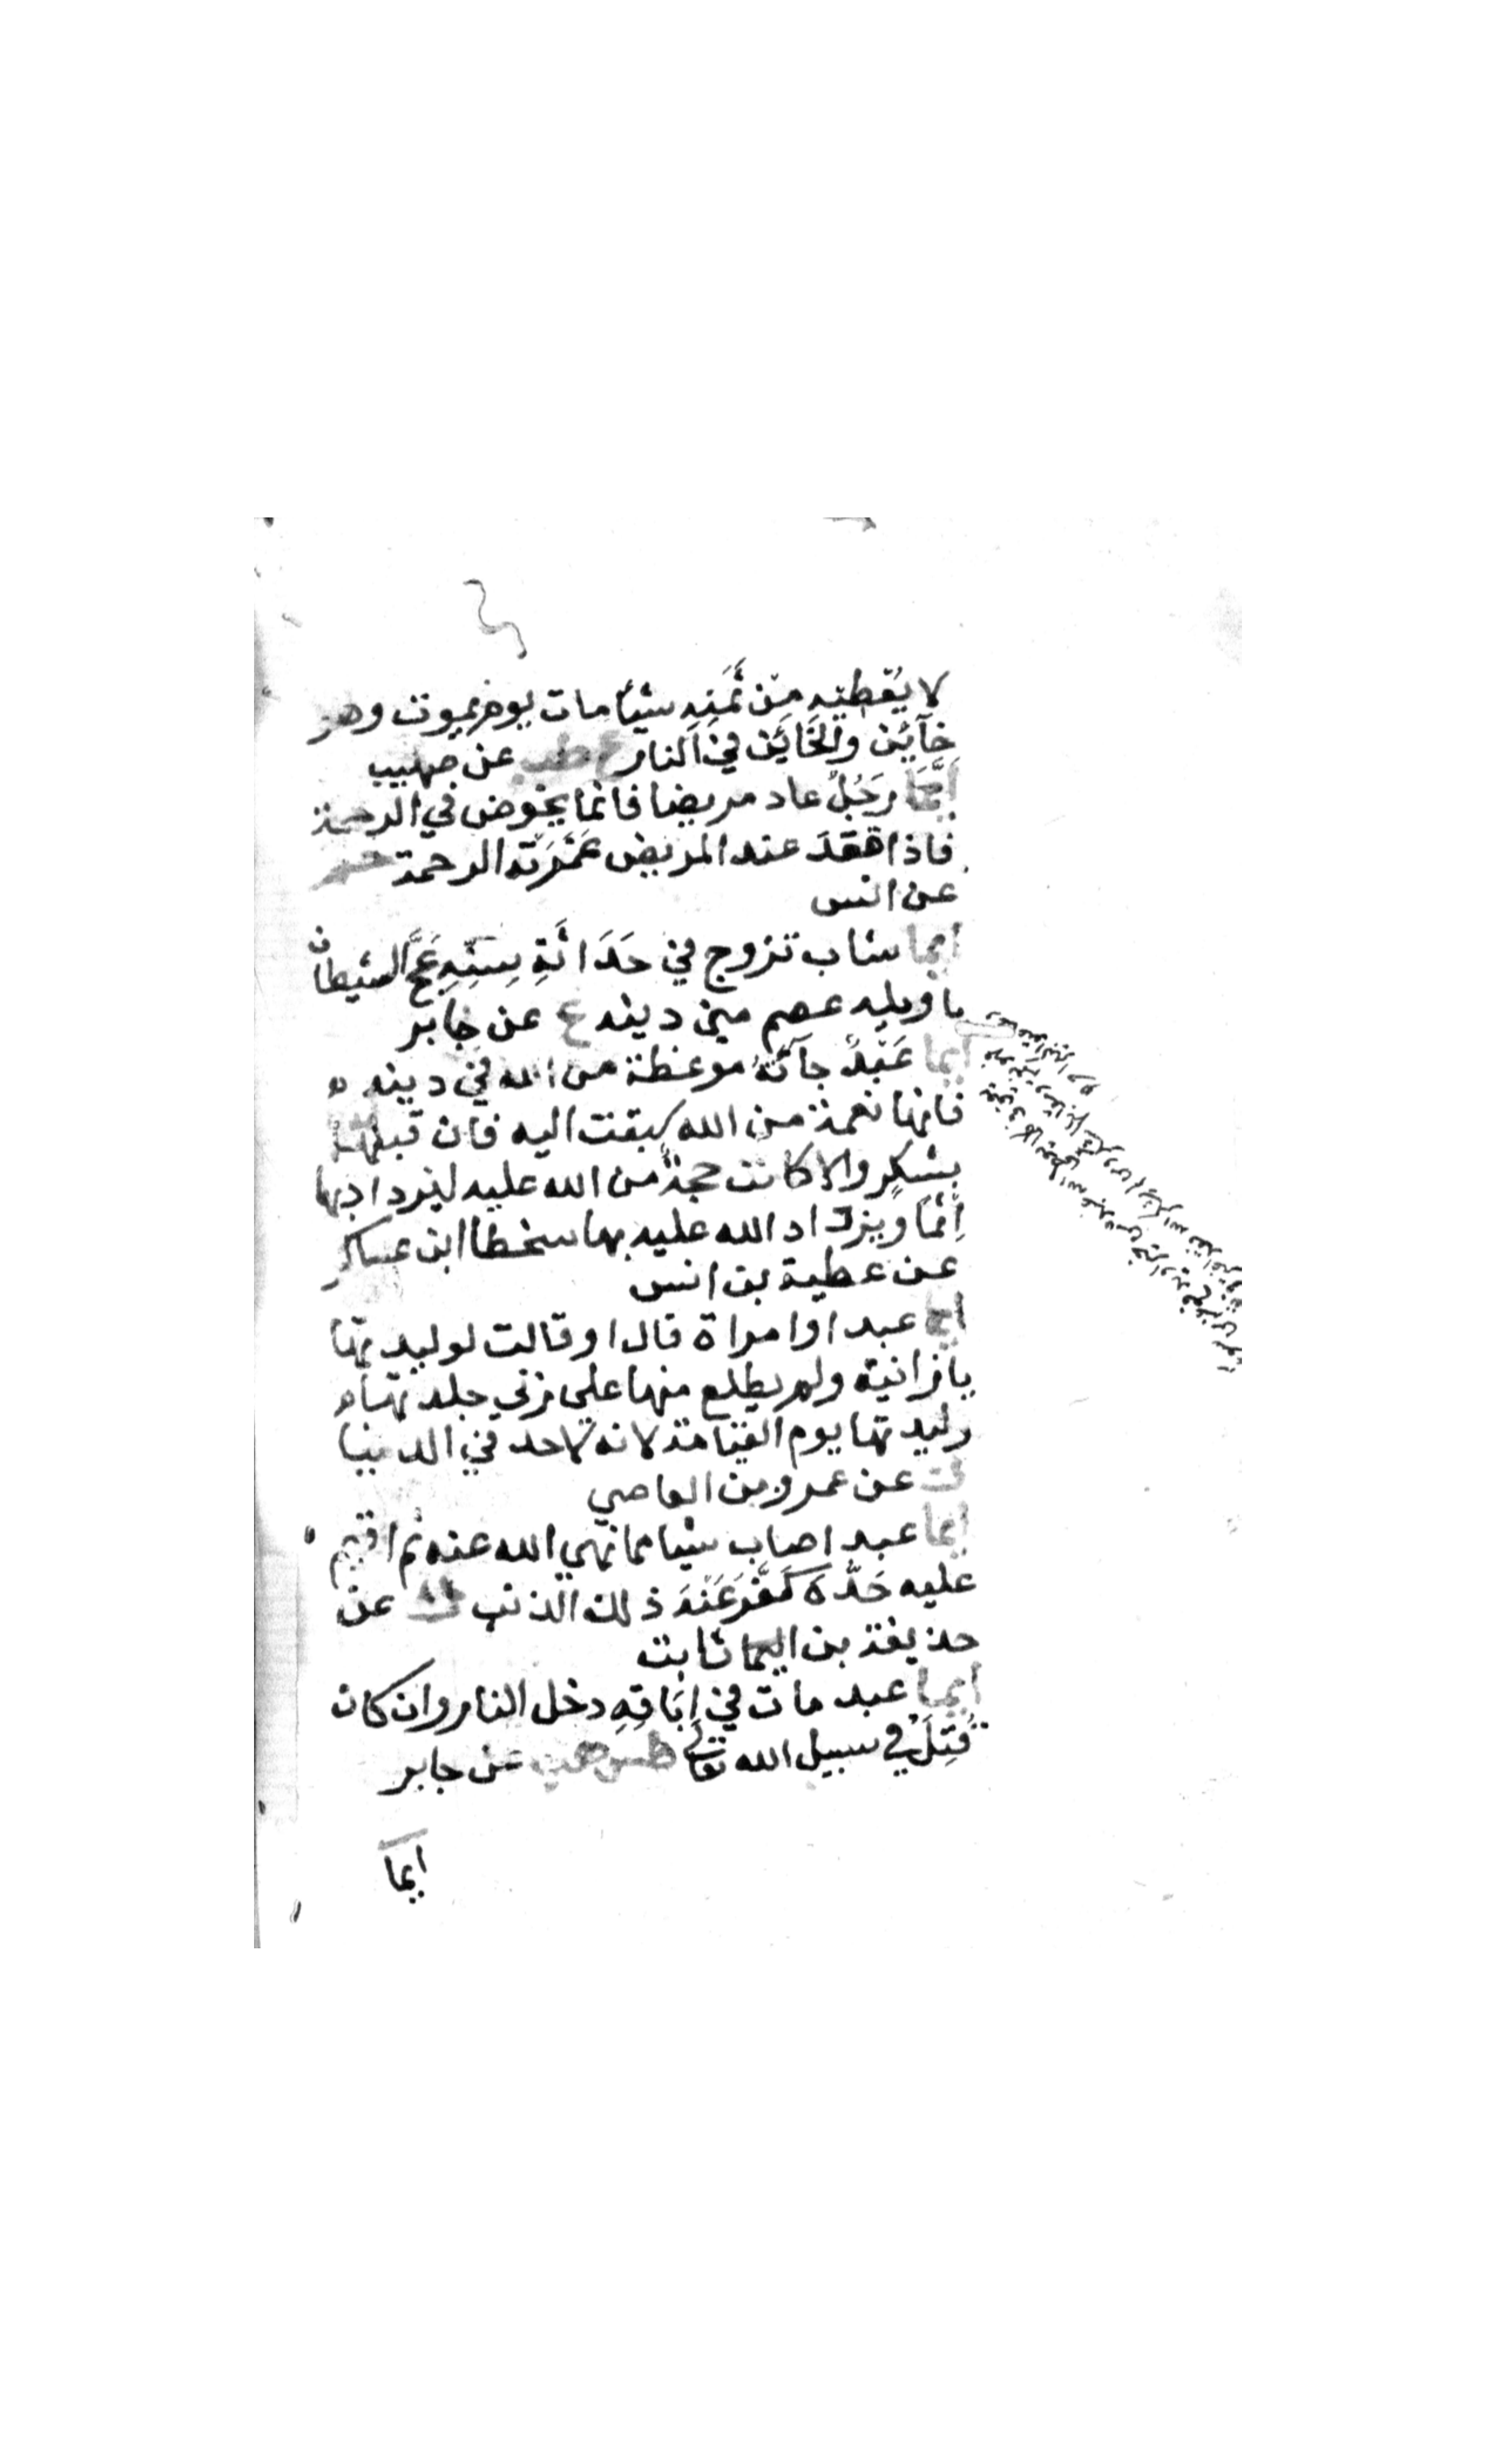 لا يُعْطِيَه مِنْ ثَمَنِهِ شيأ مات يوم يموت وهو
خآئِن والخَائِن في النار ع طب عن صهيب
اَيُّمَا رَجُلٌ عاد مريضا فانما يخوض في الرحمة
فاذا قعَدَ عند المريض غَمَرَته الرحمة حم
عن انس
ايما شاب تزوج في حَدَاثَةِ سِنِّهِ عَجَّ الشيطان
ياويله عصم مني دينه ع عن جابر
ايما عَبْدٌ جآئَهُ موعظة من الله في دينه
فانها نعمة من الله سبقت اليه فان قبلها
بشكرٍ والا كانت حجةً من الله عليه ليزداد بها
اِثْمًا ويزداد الله عليه بها سخطا ابن عساكر
عن عطية بن انس
ايما عبد او امراة قال او قالت لوليدتها
يا زانية ولم يطلع منها على زني جلدتها
وليدتها يوم القيامة لانه لا حد في الدنيا
ك عن عمرو بن العاصي
ايما عبد اصاب شيا مما نهي الله عنه ثم اقيم
عليه حَدَّهُ كَفَّرَ عَنْهُ ذلك الذنب ك عن
حذيفة بن اليما ثابت
ايما عبد مات في اِبَاقِهِ دخل النار وان كان
قُتِلَ في سبيل الله تعالى طس هب عن جابر
ايما